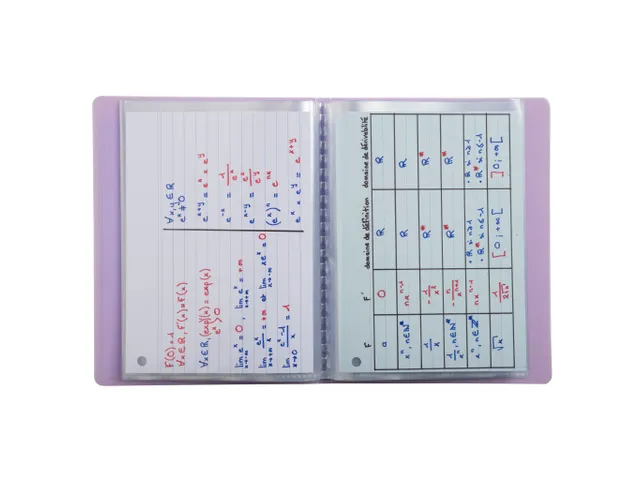 F(0) = 1
∀x∈ℝ, F'(x) = F(x)
∀x∈ℝ, (exp)'(x) = exp(x)
eˣ > 0
lim eˣ = 0, lim eˣ = +∞
x→-∞ x→+∞
lim eˣ/x = +∞ et lim xeˣ = 0
x→+∞ x→-∞
lim (eˣ-1)/x = 1
x→0
∀x,y∈ℝ
eˣ ≠ 0
eˣ⁺ʸ = eˣ × eʸ
e⁻ˣ = 1/eˣ
(eˣ)ⁿ = eⁿˣ
eˣ × eʸ = eˣ⁺ʸ
F F' domaine de définition domaine de dérivabilité
a 0 ℝ ℝ
xⁿ, n∈ℕ* nxⁿ⁻¹ ℝ ℝ
1/x -1/x² ℝ* ℝ*
1/xⁿ, n∈ℕ* -n/xⁿ⁺¹ ℝ* ℝ*
xⁿ, n∈ℤ* nxⁿ⁻¹ • ℝ si n≥1 • ℝ si n≥1
• ℝ* si n≤-1 • ℝ* si n≤-1
√x 1/(2√x) [0; +∞[ ]0; +∞[